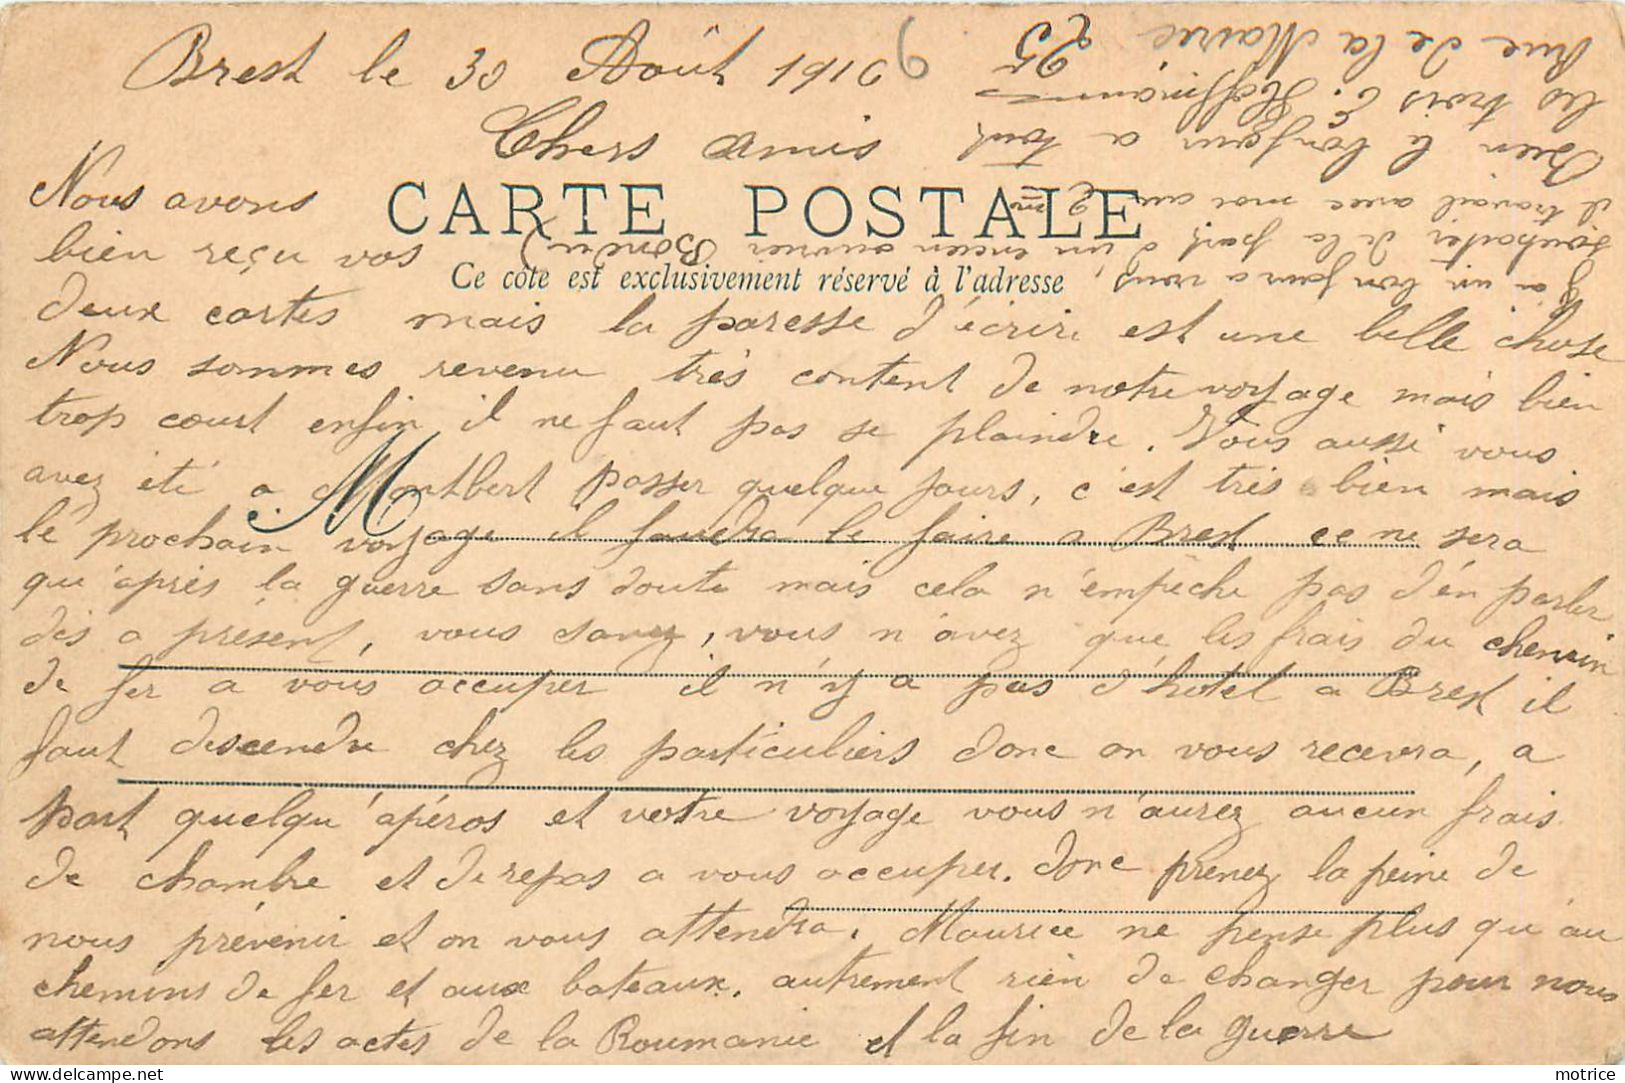 Brest le 30 Août 1916
Chers Amis
CARTE POSTALE
Ce côté est exclusivement réservé à l'adresse
Nous avons
bien reçu vos
deux cartes mais la paresse d'écrire est une belle chose
Nous sommes revenu très content de notre voyage mais bien
trop court enfin il ne faut pas se plaindre. Vous aussi vous
avez été a Montbert passer quelque jours, c'est très bien mais
le prochain voyage il faudra le faire a Brest ce ne sera
qu'après la guerre sans doute mais cela n'empêche pas d'én parler
dès a présent, vous savez, vous n'avez que les frais du chemin
de fer a vous occuper il n'y a pas d'hotel a Brest il
faut descendre chez les particuliers donc on vous recevra, a
part quelqu'apéros et votre voyage vous n'aurez aucun frais
de chambre et de repas a vous occuper. donc prenez la peine de
nous prévenir et on vous attendra. Maurice ne pense plus qu'au
chemins de fer et aux bateaux. autrement rien de changer pour nous
attendons les actes de la Roumanie et la fin de la guerre
J'ai un bonjour a vous
souhaiter de la part d'un ancien ouvrier Bondu
il travail avec moi au 2em
Bien le bonjour a tout
les trois E. Hoffmann
Rue de la Mairie 25
M
motrice